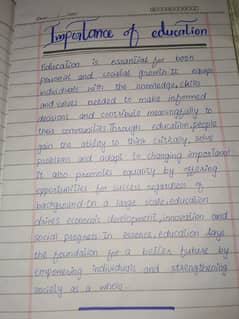 Importance of education
Education is essential for both
personal and societal growth. It equips
individuals with the knowledge, skills
and values needed to make informed
decisions and contribute meaningfully to
their communities. Through education, people
gain the ability to think critically, solve
problems and adapt to changing important
It also promotes equality by offering
opportunities for success regardless of
background. On a large scale, education
drives economic development, innovation and
social progress. In essence, education lays
the foundation for a better future by
empowering individuals and strengthening
society as a whole.